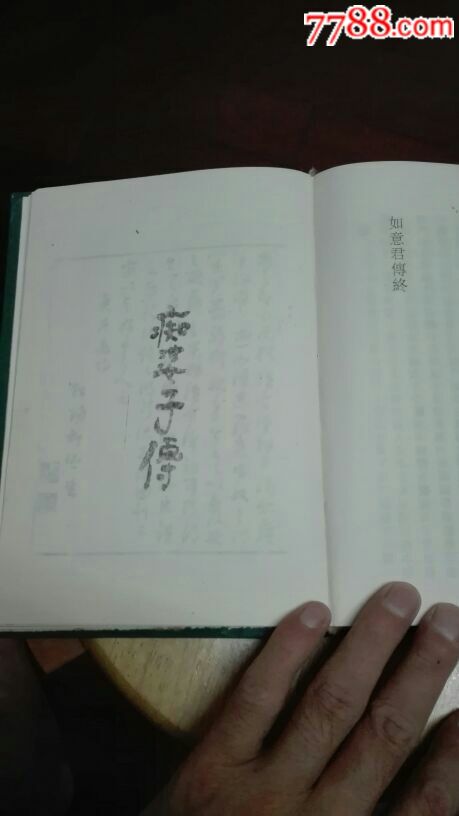 7788.com
如意君傳終
痴婆子傳